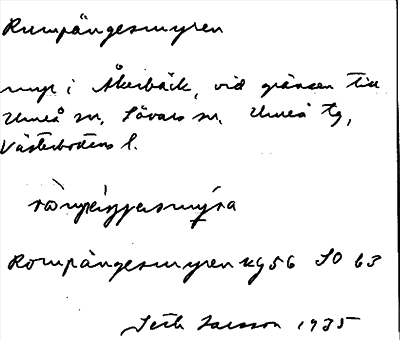 Rumpängesmyren
myr i Åkerbäck, vid gränsen till
Umeå sn, Sävars sn. Umeå tg,
Västerbottens l.
Rompängesmyren kg 56 SO 63
Seth Larsson 1935